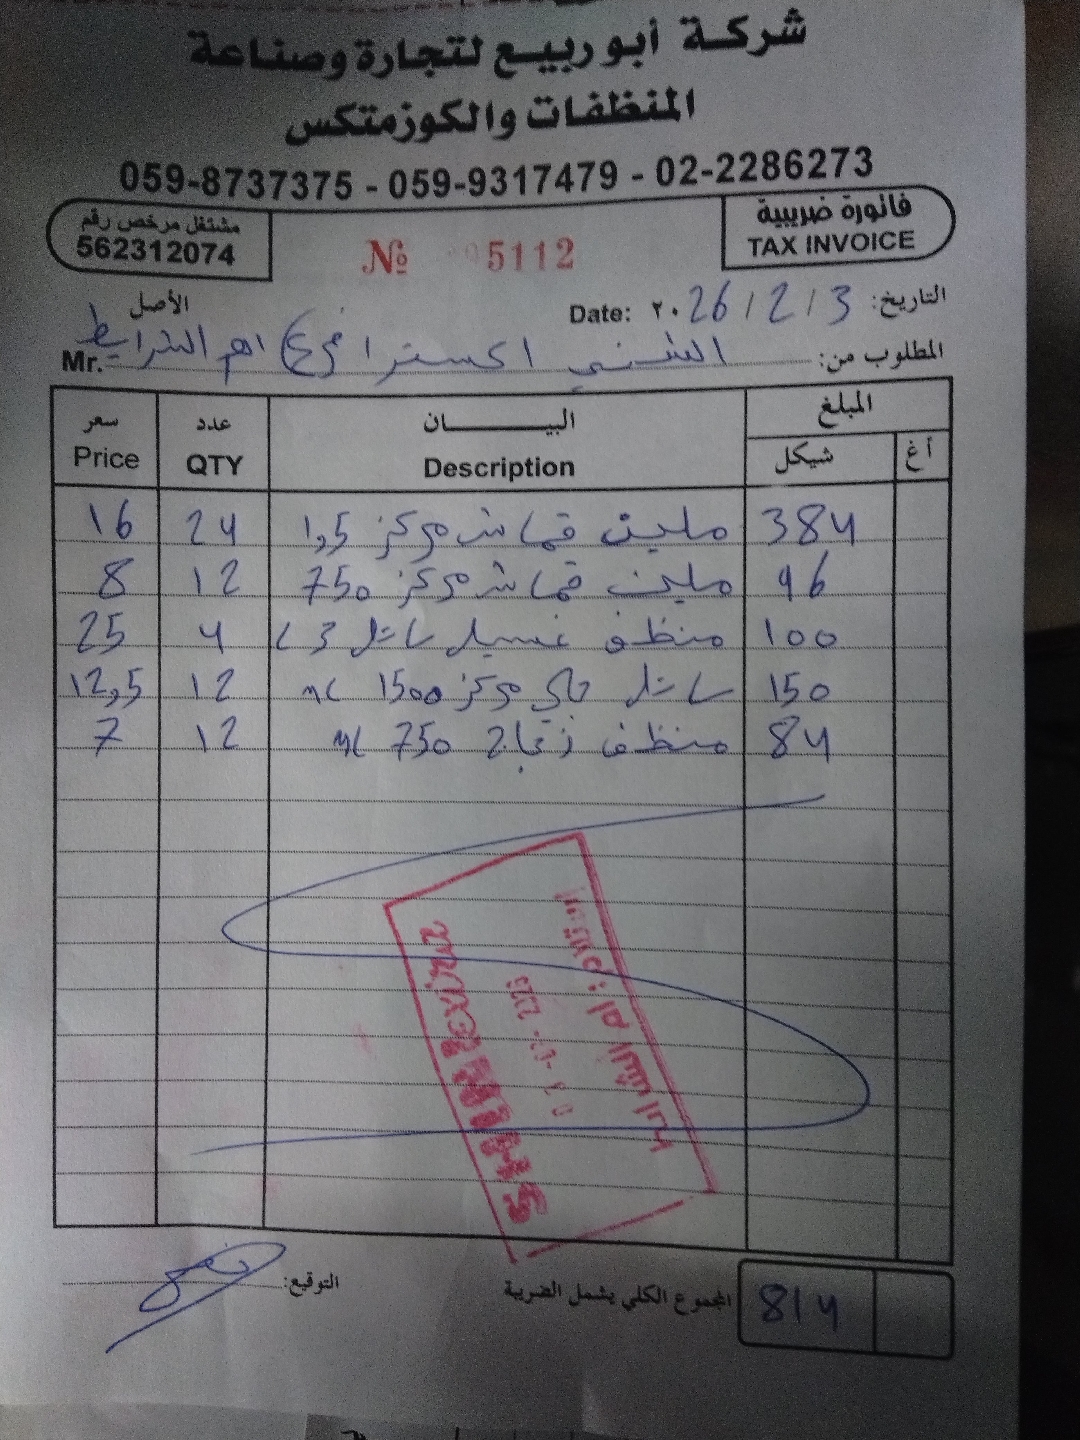 شركة أبو ربيع لتجارة وصناعة
المنظفات والكوزمتكس
059-8737375 - 059-9317479 - 02-2286273
فاتورة ضريبية
TAX INVOICE
مشتغل مرخص رقم
562312074
№ 5112
التاريخ: 3 / 2 / ٢٠26 Date:
الأصل
المطلوب من: الشني اكسترا فرع ام الشرايط Mr.
المبلغ البيــــــان عدد سعر
شيكل أغ Description QTY Price
384 ملين قماش مركز 1,5 24 16
96 ملين قماش مركز 750 12 8
100 منظف غسيل سائل 3 L 4 25
150 سائل جلي مركز 1500 ML 12 12,5
84 منظف زجاج 750 ML 12 7
SHINI Extra
ام الشرايط
المجموع الكلي يشمل الضربة 814
التوقيع: